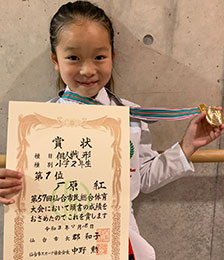 賞状
種目 個人戦形
種別 小学2年生
第1位
原 紅
第57回仙台市民総合体育
大会において頭書の成績を
おさめたのでこれを賞します
仙台市長 郡 和子
仙台市スポーツ協会会長 中野